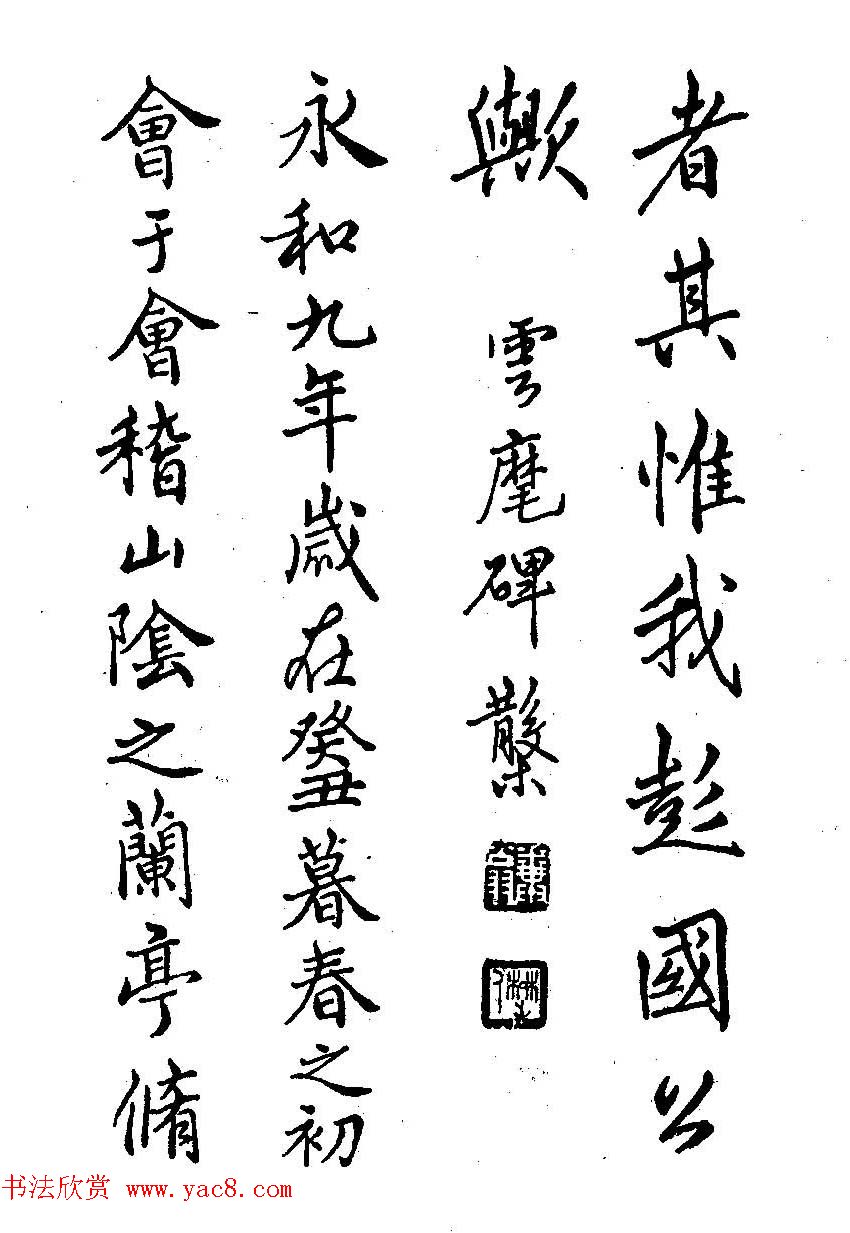 者其惟我彭國公
歟 雲麾碑 槩
永和九年歲在癸丑暮春之初
會于會稽山陰之蘭亭脩
书法欣赏 www.yac8.com